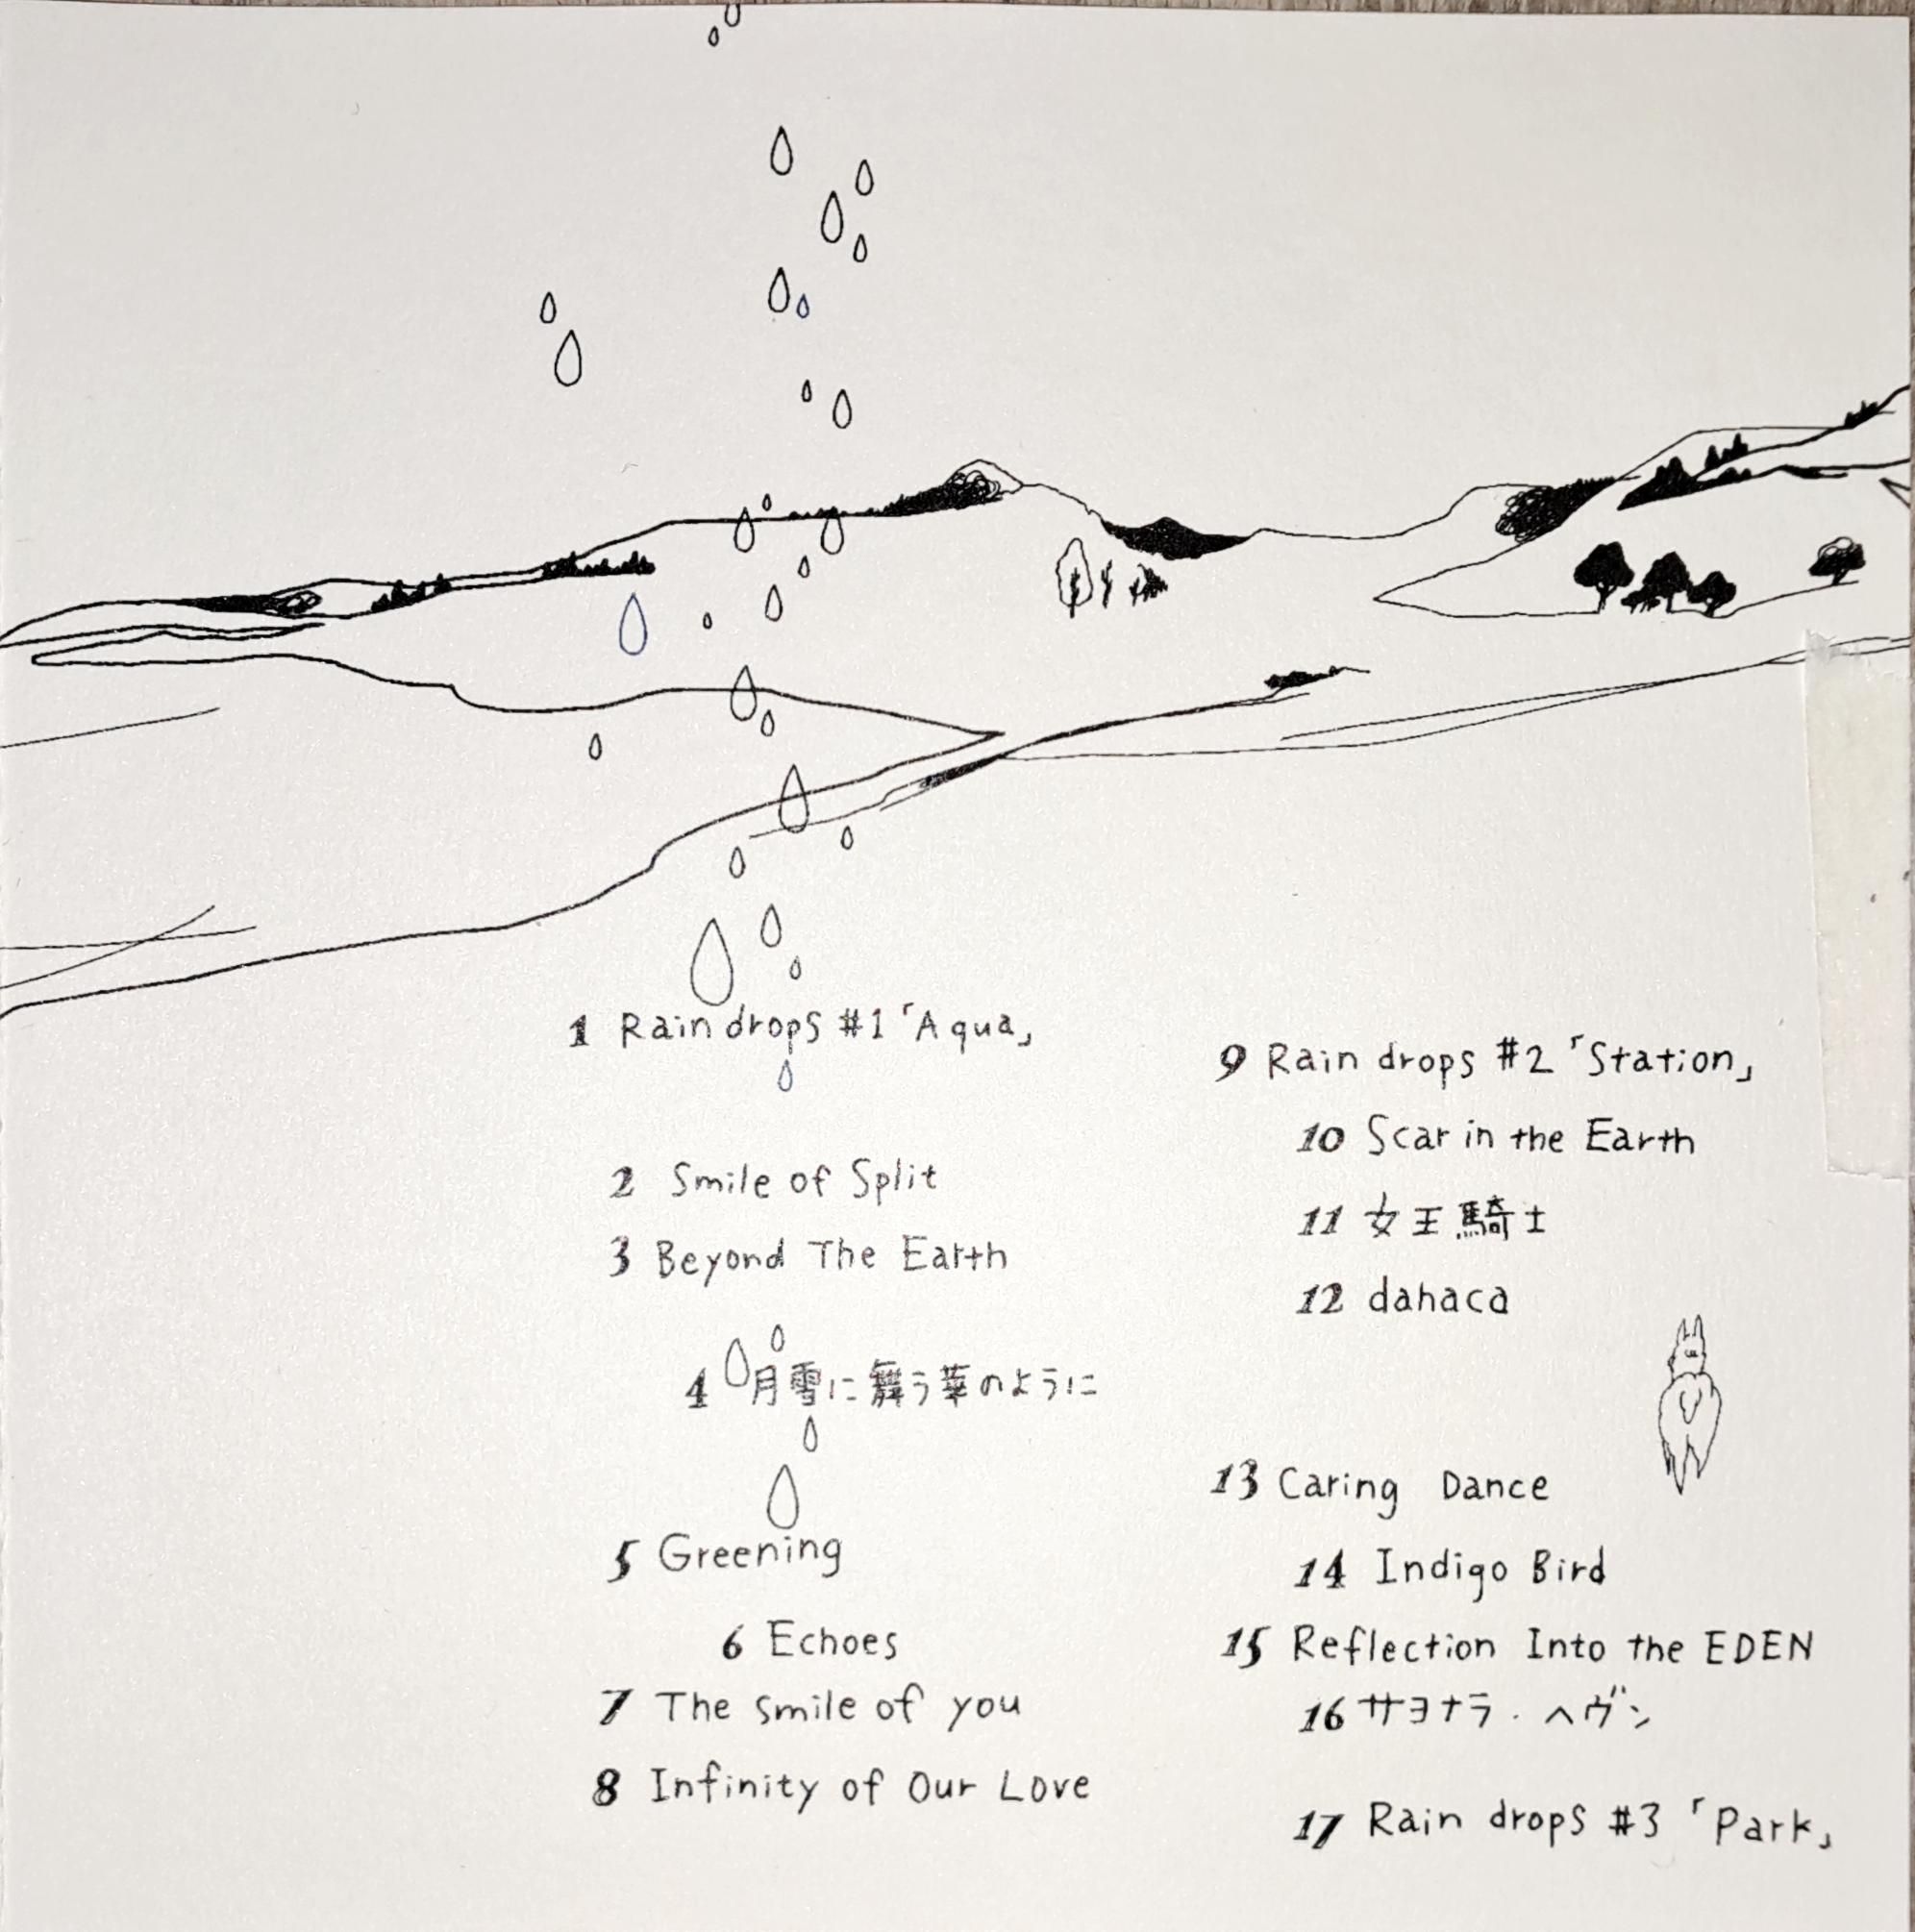 1 Rain drops #1「Aqua」
2 Smile of Split
3 Beyond The Earth
4 月雪に舞う華のように
5 Greening
6 Echoes
7 The smile of you
8 Infinity of Our Love
9 Rain drops #2「Station」
10 Scar in the Earth
11 女王騎士
12 dahaca
13 Caring Dance
14 Indigo Bird
15 Reflection Into the EDEN
16 サヨナラ・ヘヴン
17 Rain drops #3「Park」